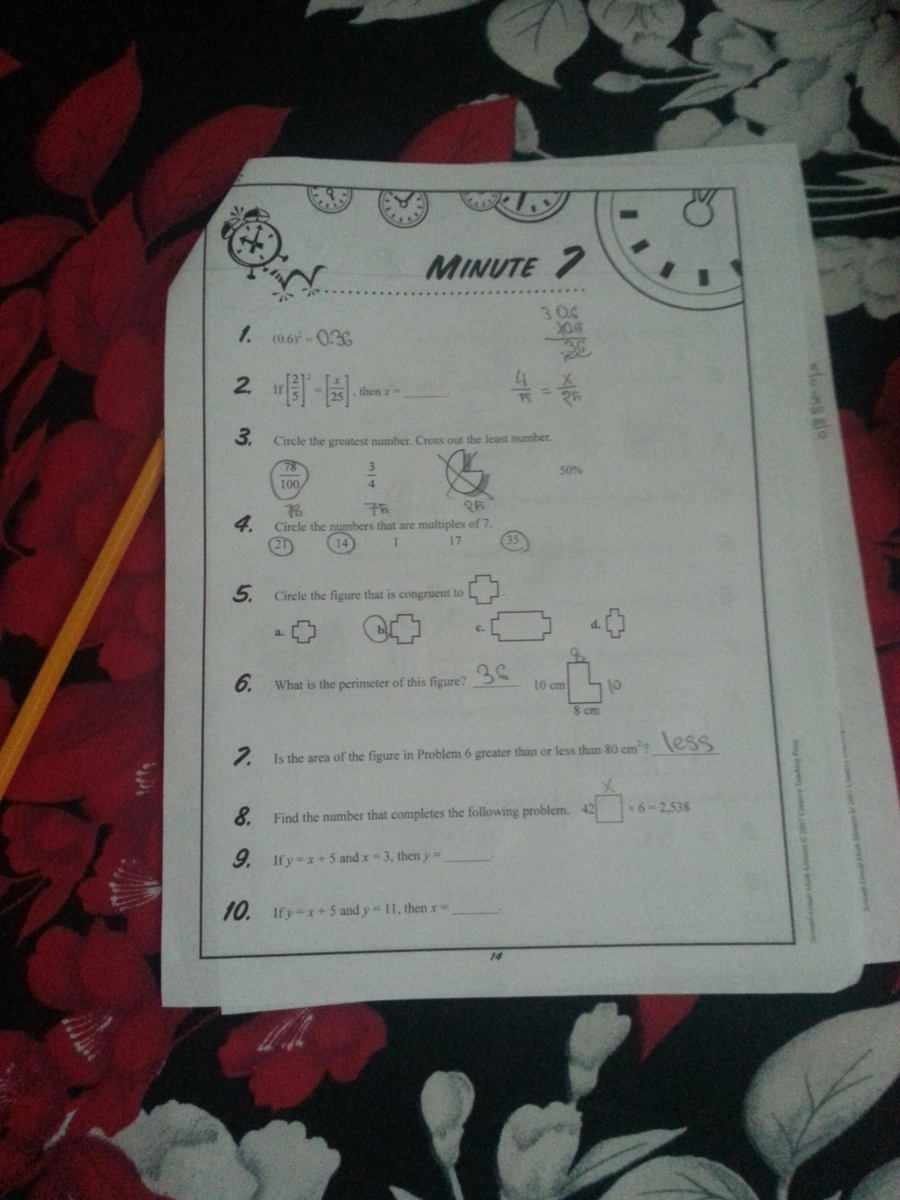 MINUTE 7
1. (0.6)² = 0.36
30.6
x0.6
36
2. If [2/5]² = [x/25], then x = ______.
4/5 = x/25
3. Circle the greatest number. Cross out the least number.
78/100 3/4 50%
78 75 25
4. Circle the numbers that are multiples of 7.
21 14 1 17 35
5. Circle the figure that is congruent to .
a. b. c. d.
8
6. What is the perimeter of this figure? 36 10 cm 10
8 cm
7. Is the area of the figure in Problem 6 greater than or less than 80 cm²? less
x
8. Find the number that completes the following problem. 42 × 6 = 2,538
9. If y = x + 5 and x = 3, then y = ______.
10. If y = x + 5 and y = 11, then x = ______.
14
Seventh-Grade Math Minutes © 2007 Creative Teaching Press